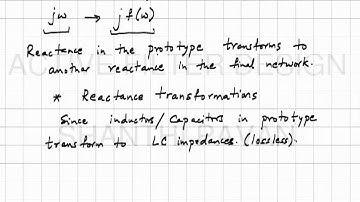 jω → j f(ω)
Reactance in the prototype transforms to
another reactance in the final network.
* Reactance transformations
Since inductors/Capacitors in prototype
transform to LC impedances. (lossless).